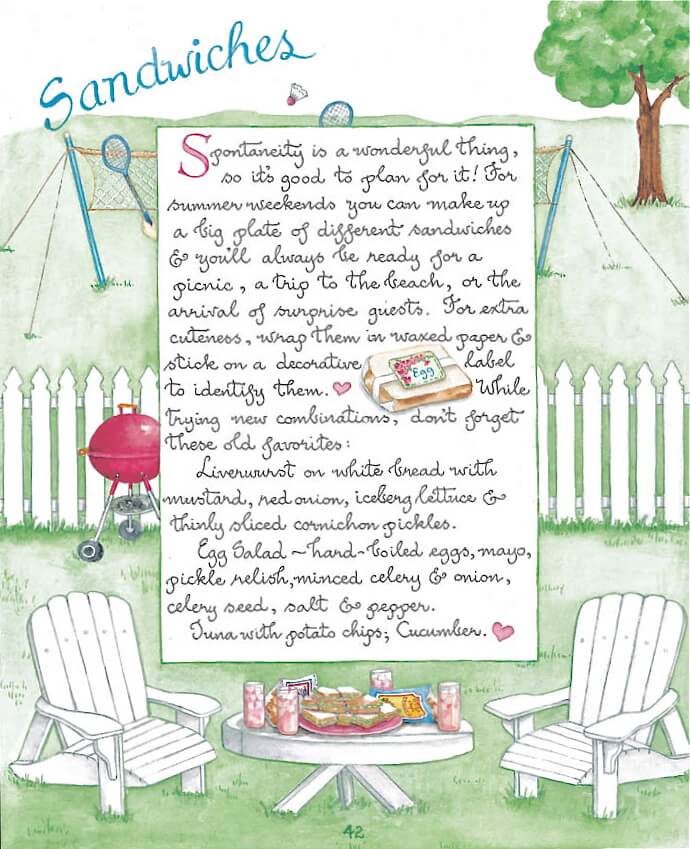 Sandwiches
Spontaneity is a wonderful thing,
so it's good to plan for it! For
summer weekends you can make up
a big plate of different sandwiches
& you'll always be ready for a
picnic, a trip to the beach, or the
arrival of surprise guests. For extra
cuteness, wrap them in waxed paper &
stick on a decorative label
Egg
to identify them. While
trying new combinations, don't forget
these old favorites:
Liverwurst on white bread with
mustard, red onion, iceberg lettuce &
thinly sliced cornichon pickles.
Egg Salad ~ hard-boiled eggs, mayo,
pickle relish, minced celery & onion,
celery seed, salt & pepper.
Tuna with potato chips; Cucumber.
42